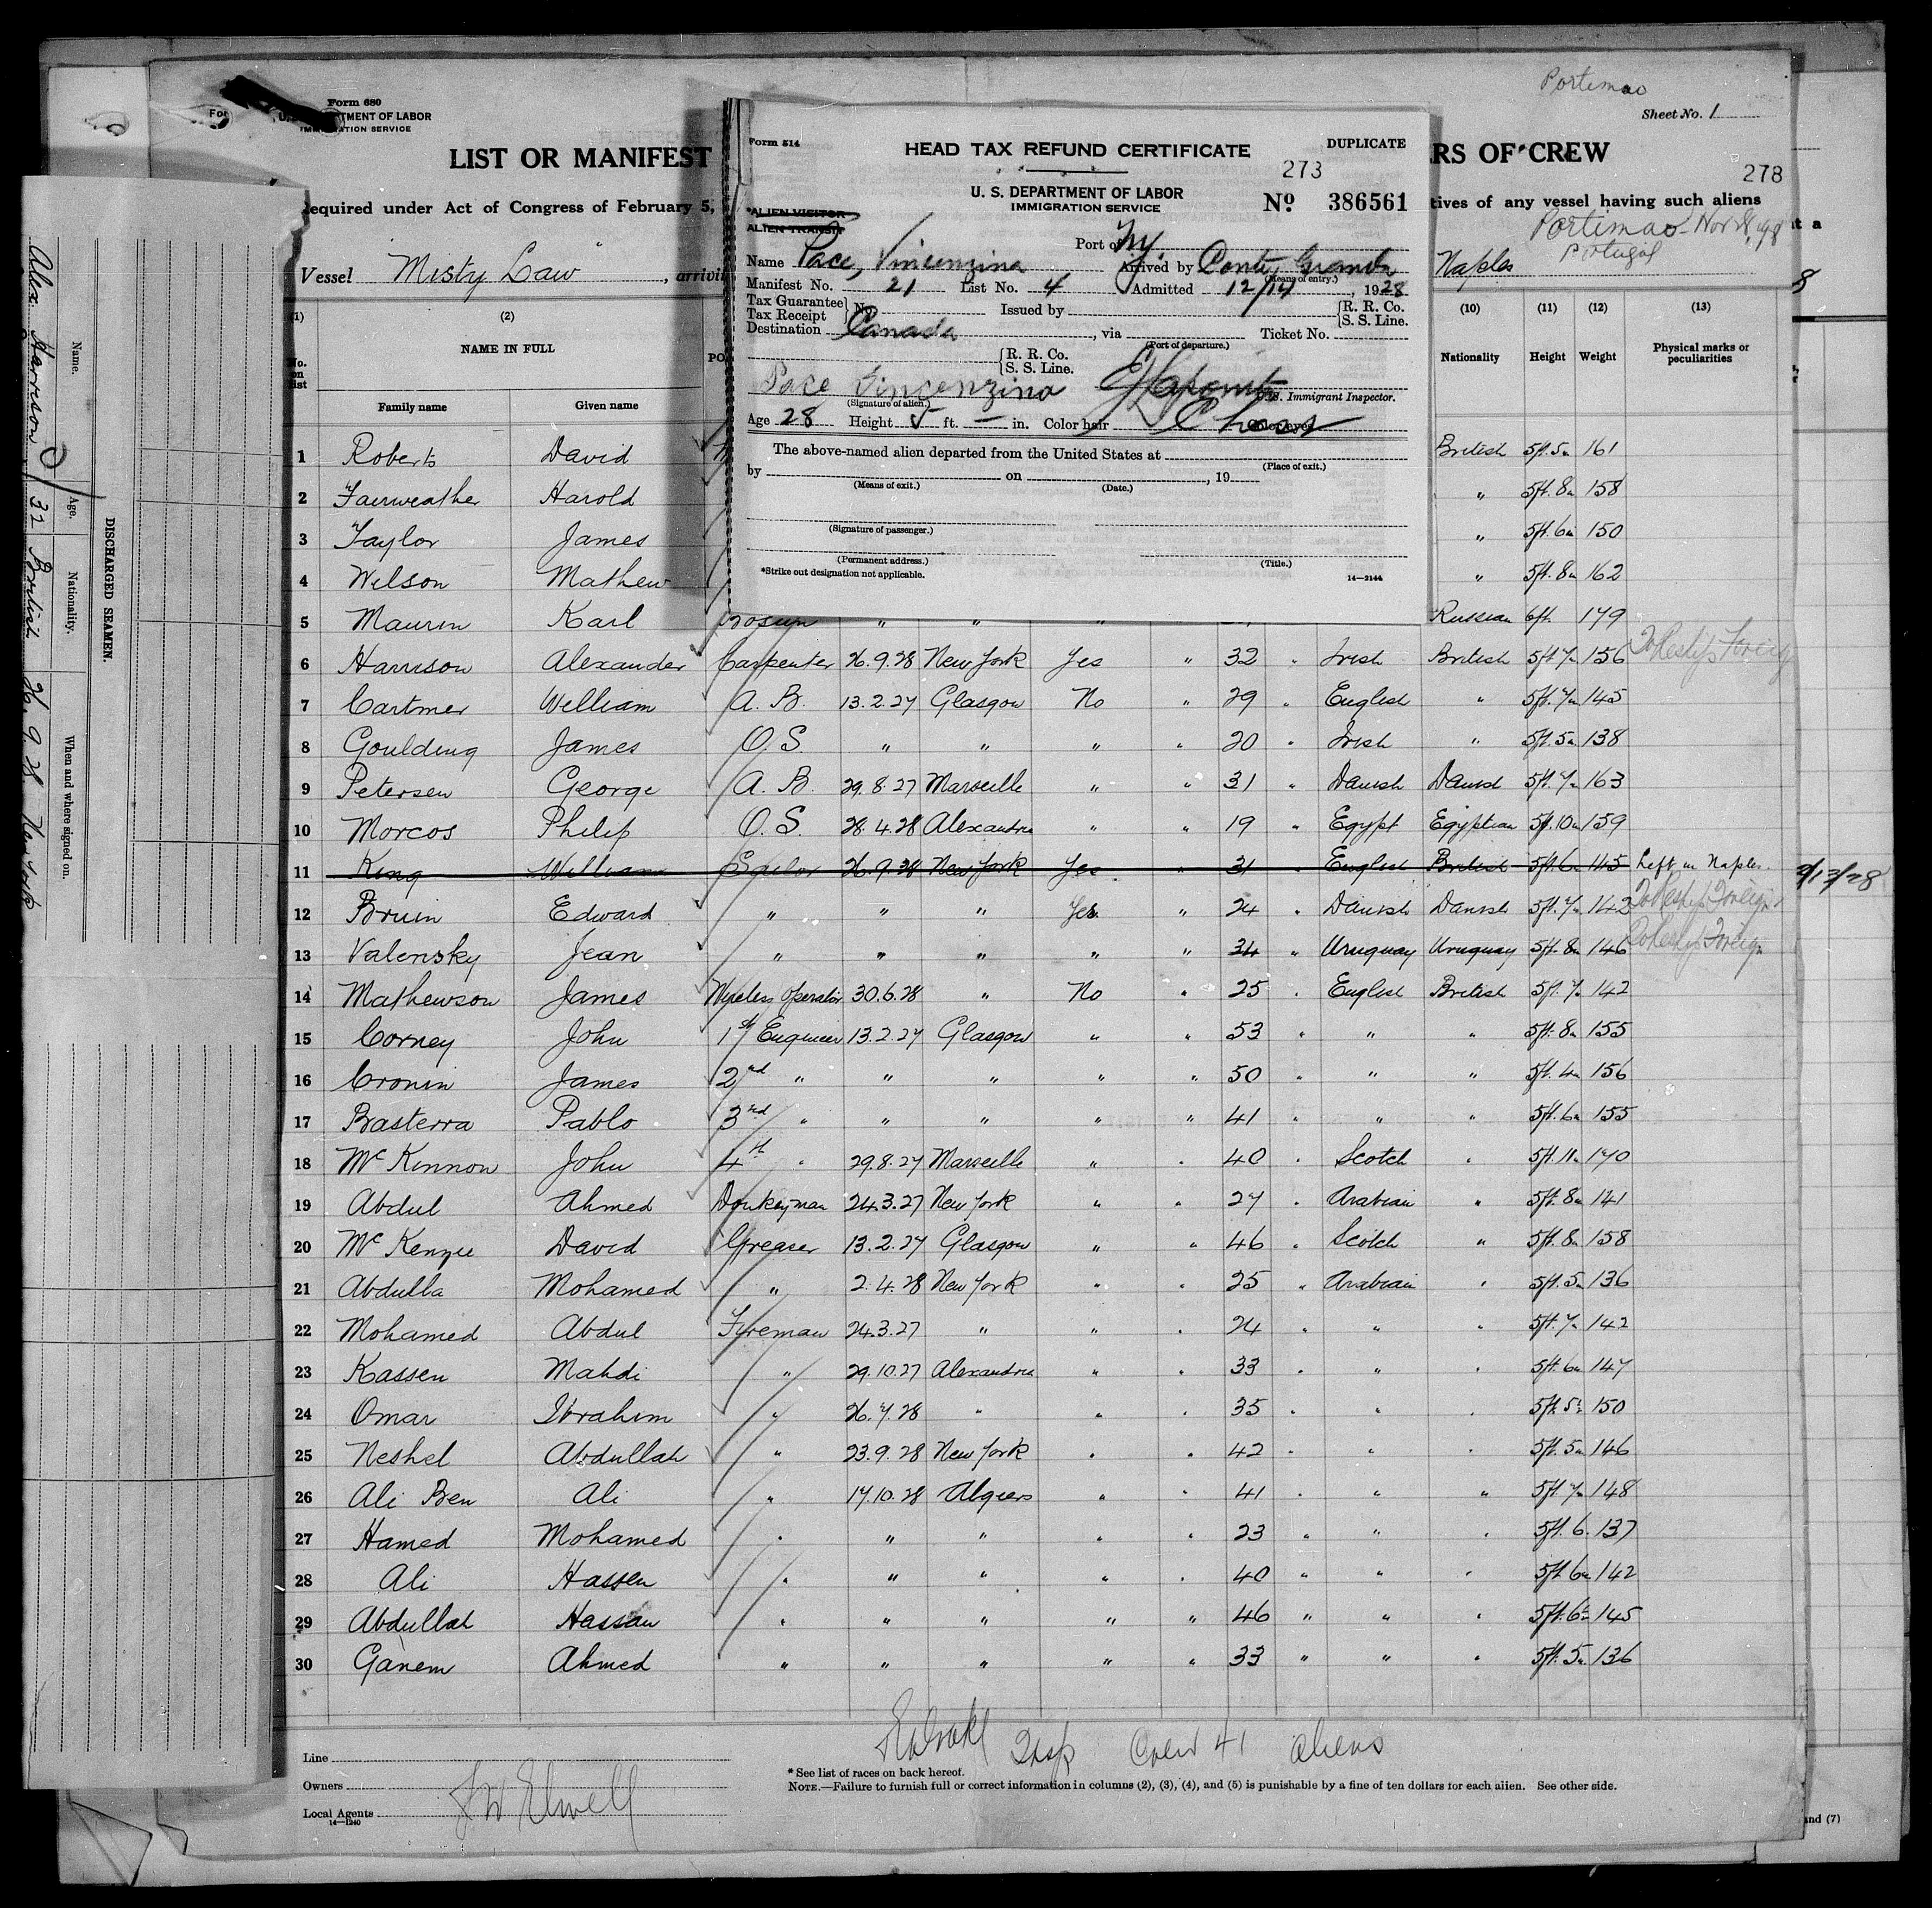 Portimao
Form 680
U. S. DEPARTMENT OF LABOR
IMMIGRATION SERVICE
Sheet No. 1
LIST OR MANIFEST
RS OF CREW
278
Required under Act of Congress of February 5,
tives of any vessel having such aliens
Portimao - Nov
Portugal
Vessel Misty Law, arrivin
Naples
Form 514
HEAD TAX REFUND CERTIFICATE
DUPLICATE
273
U. S. DEPARTMENT OF LABOR
IMMIGRATION SERVICE
No 386561
*ALIEN VISITOR
ALIEN TRANSIT
Port of N.Y.
Name Pace, Vincenzina Arrived by Conte Grande
(Means of entry.)
Manifest No. 21 List No. 4 Admitted 12/14, 1928
Tax Guarantee
Tax Receipt No. Issued by R. R. Co. S. S. Line.
Destination Canada, via Ticket No.
(Port of departure.)
R. R. Co.
S. S. Line.
Pace Vincenzina
(Signature of alien.)
U. S. Immigrant Inspector.
Age 28 Height 5 ft. – in. Color hair Color eyes
The above-named alien departed from the United States at
(Place of exit.)
by on , 19
(Means of exit.) (Date.)
(Signature of passenger.)
(Permanent address.) (Title.)
*Strike out designation not applicable.
14—2144
(1) (2) (10) (11) (12) (13)
No. on list NAME IN FULL Nationality Height Weight Physical marks or peculiarities
Family name Given name
1 Roberts David British 5ft. 5in 161
2 Fairweather Harold " 5ft. 8in 158
3 Taylor James " 5ft. 6in 150
4 Wilson Mathew " 5ft. 8in 162
5 Maurin Karl Bosun " " " Russian 6ft 179
6 Harrison Alexander Carpenter 26.9.28 New York Yes " 32 " Irish British 5ft 7in 156 To Reship Foreign
7 Cartmer William A. B. 13.2.27 Glasgow No " 29 " English " 5ft. 7in 145
8 Goulding James O. S. " " " " 20 " Irish " 5ft. 5in 138
9 Petersen George A. B. 29.8.27 Marseille " " 31 " Danish Danish 5ft. 7in 163
10 Morcos Philip O. S. 28.4.28 Alexandria " " 19 " Egypt Egyptian 5ft. 10in 159
11 King William Sailor 26.9.28 New York Yes " 31 " English British 5ft 6in 145 Left in Naples.
12 Bruin Edward " " " Yes " 24 " Danish Danish 5ft. 7in 142 To Reship Foreign
13 Valensky Jean " " " " " 34 " Uruguay Uruguay 5ft. 8in 146 To Reship Foreign
14 Mathewson James Wireless Operator 30.6.28 " No " 25 " English British 5ft. 7in 142
15 Corney John 1st Engineer 13.2.27 Glasgow " " 53 " " " 5ft. 8in 155
16 Cronin James 2nd " " " " " 50 " " " 5ft. 4in 156
17 Basterra Pablo 3rd " " " " " 41 " " " 5ft. 6in 155
18 McKinnon John 4th " 29.8.27 Marseille " " 40 " Scotch " 5ft 11in 170
19 Abdul Ahmed Donkeyman 24.3.27 New York " " 27 " Arabian " 5ft. 8in 141
20 McKenzie David Greaser 13.2.27 Glasgow " " 46 " Scotch " 5ft. 8in 158
21 Abdulla Mohamed " 2.4.28 New York " " 25 " Arabian " 5ft. 5in 136
22 Mohamed Abdul Fireman 24.3.27 " " " 24 " " " 5ft. 7in 142
23 Kassen Mahdi " 29.10.27 Alexandria " " 33 " " " 5ft 6in 147
24 Omar Ibrahim " 26.7.28 " " " 35 " " " 5ft 5in 150
25 Neshel Abdullah " 23.9.28 New York " " 42 " " " 5ft. 5in 146
26 Ali Ben Ali " 17.10.28 Algiers " " 41 " " " 5ft. 7in 148
27 Hamed Mohamed " " " " " 23 " " " 5ft. 6. 137
28 Ali Hassen " " " " " 40 " " " 5ft 6in 142
29 Abdullah Hassan " " " " " 46 " " " 5ft. 6in 145
30 Ganem Ahmed " " " " " 33 " " " 5ft. 5in 136
Insp Crew 41 aliens
Line
Owners
Local Agents J W Elwell
14—1240
* See list of races on back hereof.
NOTE.—Failure to furnish full or correct information in columns (2), (3), (4), and (5) is punishable by a fine of ten dollars for each alien. See other side.
and (7)
DISCHARGED SEAMEN.
Name. Age. Nationality. When and where signed on.
Alex. Harrison 32 British 26.9.28 New York